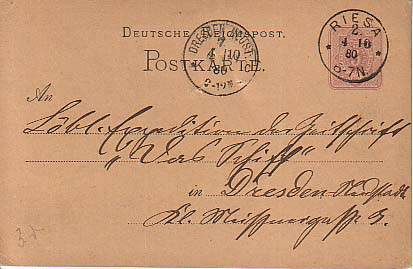 DEUTSCHE REICHSPOST.
POSTKARTE.
DRESDEN-NEUST.
4 10
80
RIESA
2.
4 10
80
6-7N.
An
Löbl. Expedition der Zeitschrift
„Das Schiff"
in Dresden Neustadt
Kl. Meissnergasse